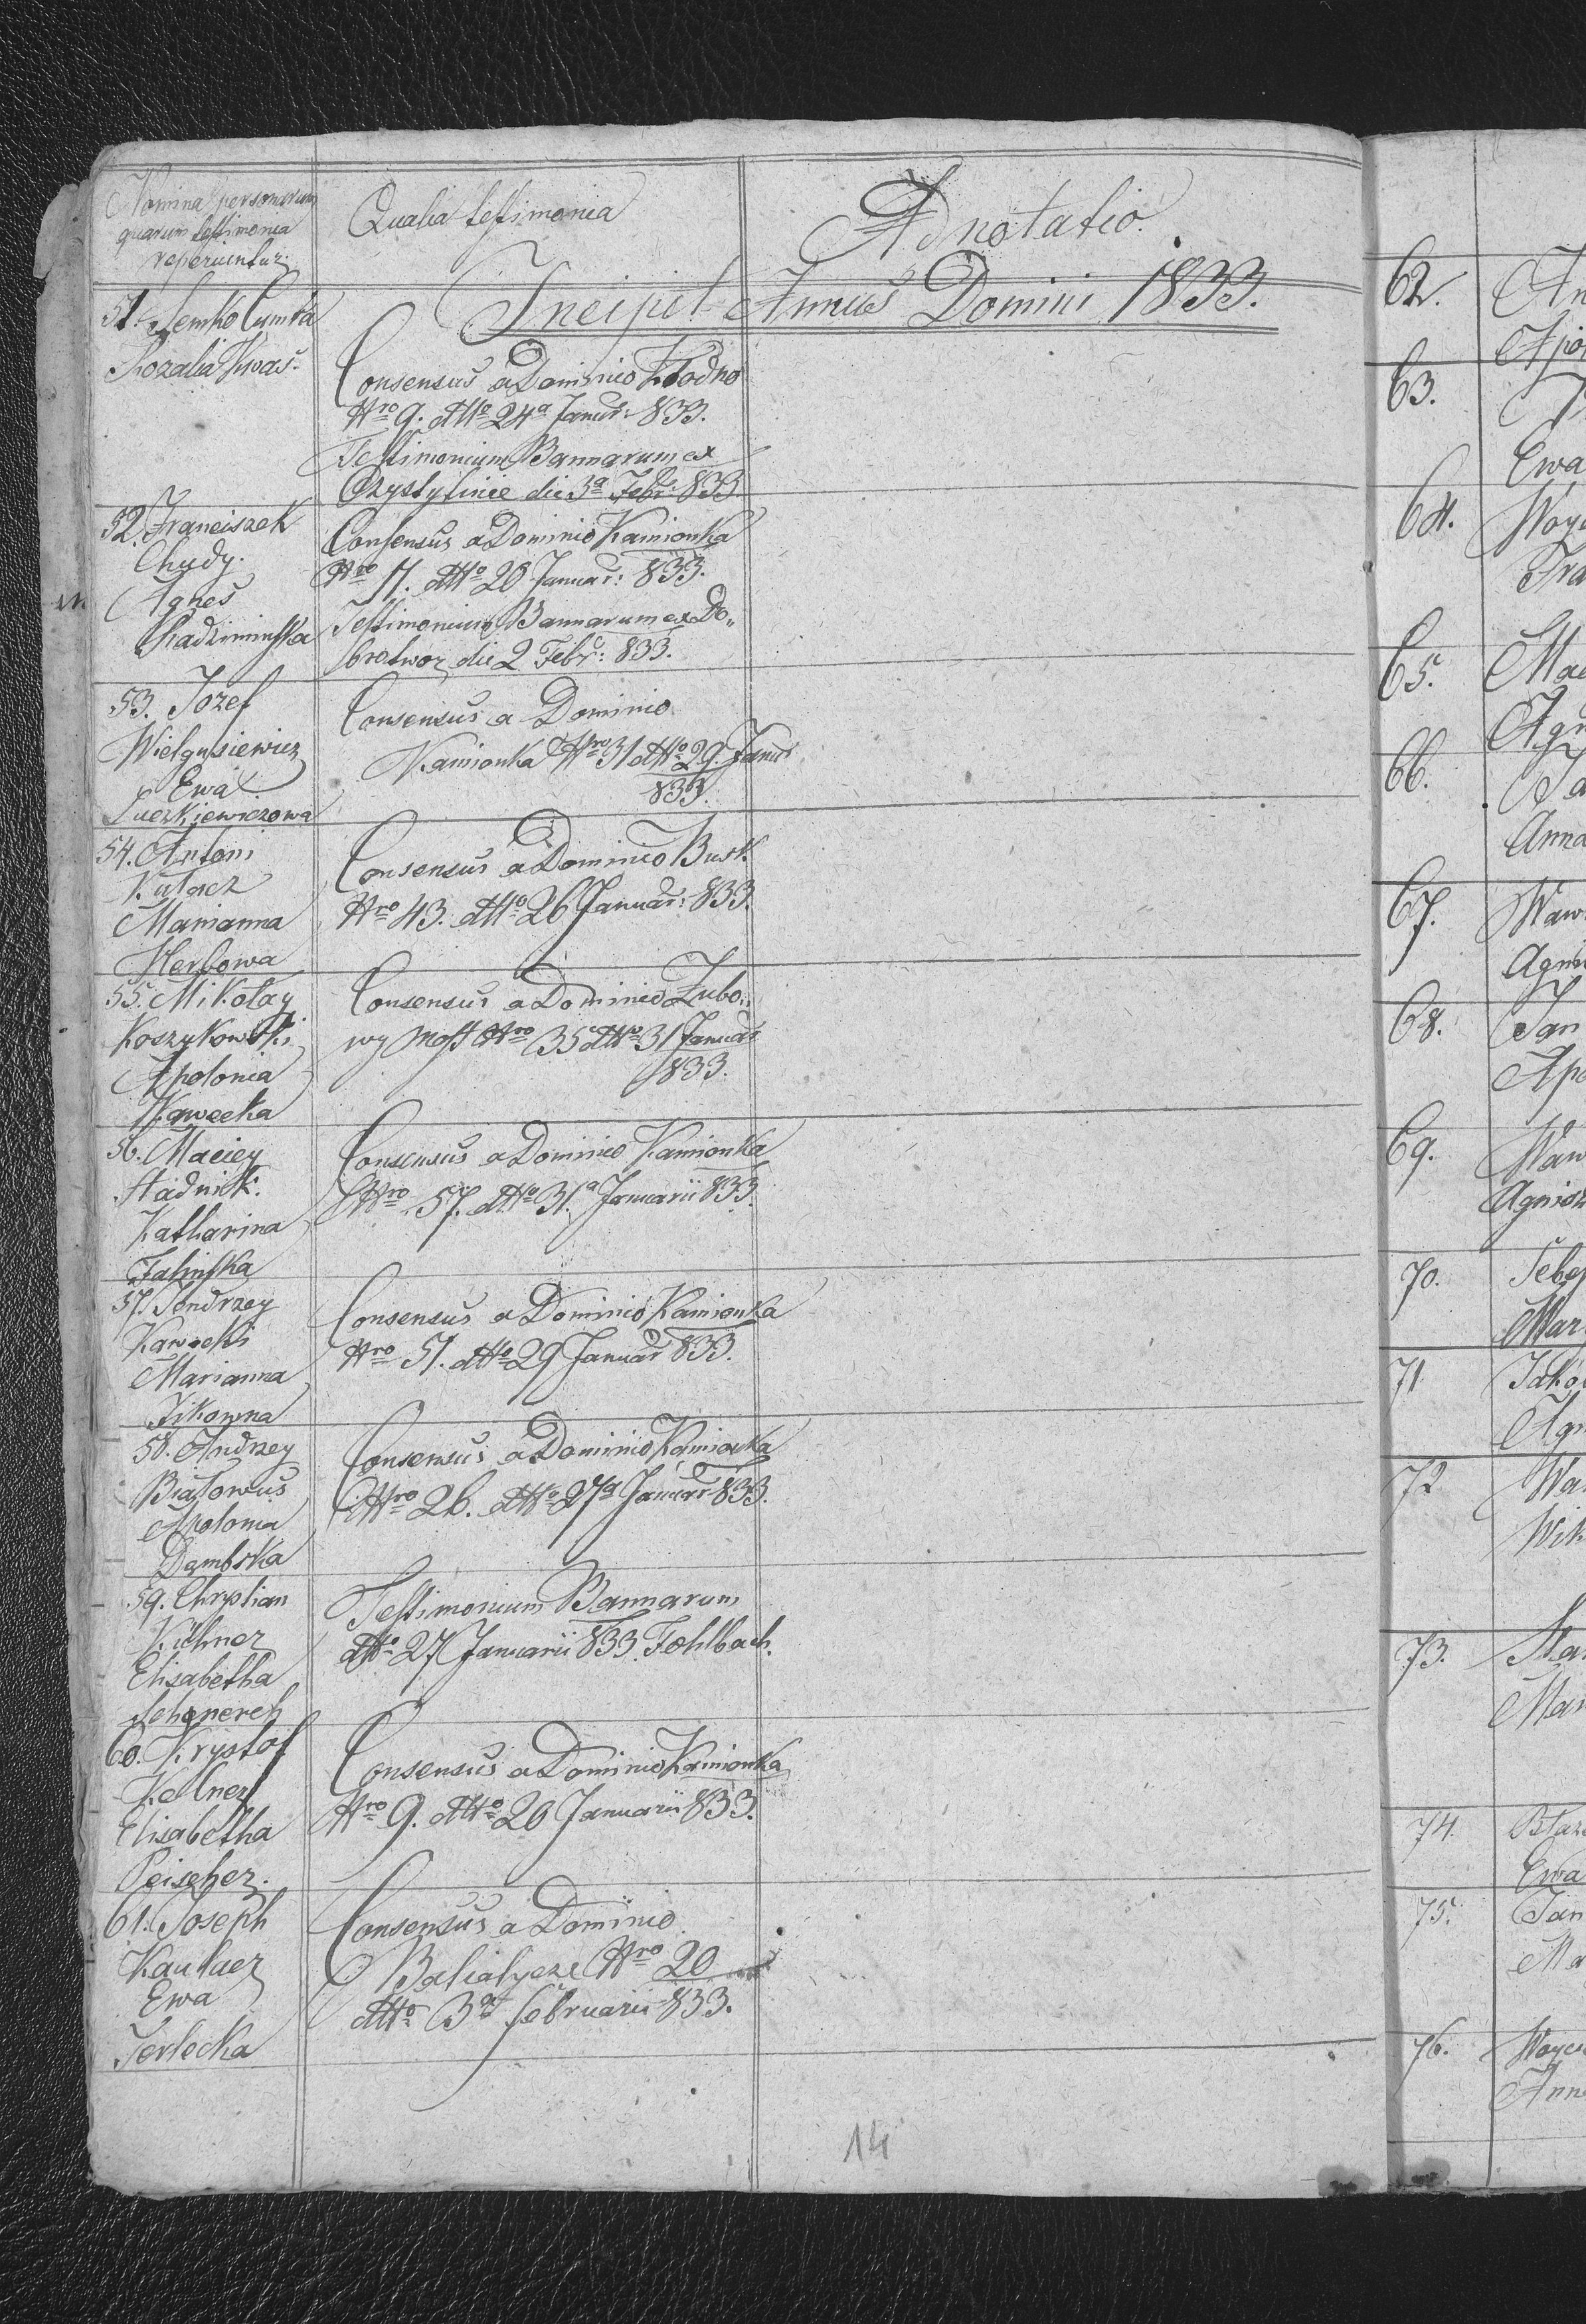 Nomina personarum
quarum testimonia
reperiuntur:
Qualia testimonia
Adnotatio.
Incipit Annus Domini 1833.
51. Semko Cymka
Rozalia Kwas.
Consensus a Dominio Kłodno
Nro 9. dtto 24a Januar: 833.
Testimonium Bannarum ex
Czystynie die 3a Febr: 833
52. Franciszek
Chudy.
Agnes
Radziminska
Consensus a Dominio Kamionka
Nro 11. dtto 20 Januar: 833.
Testimonium Bannarum ex Do„
brotwor die 2 Febr: 833.
53. Jozef
Wielgusiewicz
Ewa
Luczkiewiczowa
Consensus a Dominio
Kamionka Nro 31 dtto 29. Januar
833.
54. Antoni
Kulacz
Marianna
Herbowa
Consensus a Dominio Busk
Nro 43. dtto 26 Januar: 833.
55. Mikołay
Koszykowski
Apolonia
Kawecka
Consensus a Dominio Zubo„
wy most Nro 35 dtto 31 Januar
833.
56. Maciey
Stadnik.
Katharina
Falinska
Consensus a Dominio Kamionka
Nro 57. dtto 31.a Januarii 833.
57. Jendrzey
Kawecki
Marianna
Zikowna
Consensus a Dominio Kamionka
Nro 51. dtto 29 Januar 833.
58. Andrzey
Białowus
Apolonia
Dambska
Consensus a Dominio Kamionka
Nro 26. dtto 27a Januar 833.
59. Chrystian
Kühner
Elisabetha
Schererch
Testimonium Bannarum
dtto 27 Januarii 833. Fehlbach.
60. Krystof
Kellner
Elisabetha
Peischer.
Consensus a Dominio Kamionka
Nro 9. dtto 20 Januarii 833.
61. Joseph
Kautacz
Ewa
Terlecka
Consensus a Dominio
Batiatycze Nro 20
dtto 3a februarii 833.
14
62. An
Apo
63.
Ewa
64. Woyc
Fra
65. Mac
Agn
66. Ja
Anna
67. Waw
Agni
68. Jan
Apo
69. Waw
Agnisz
70. Seba
Mar
71 Jakó
Agn
72 Wa
Wik
73. Sta
Mar
74. Błaz
Ewa
75. Jan
Ma
76. Woyci
Anna